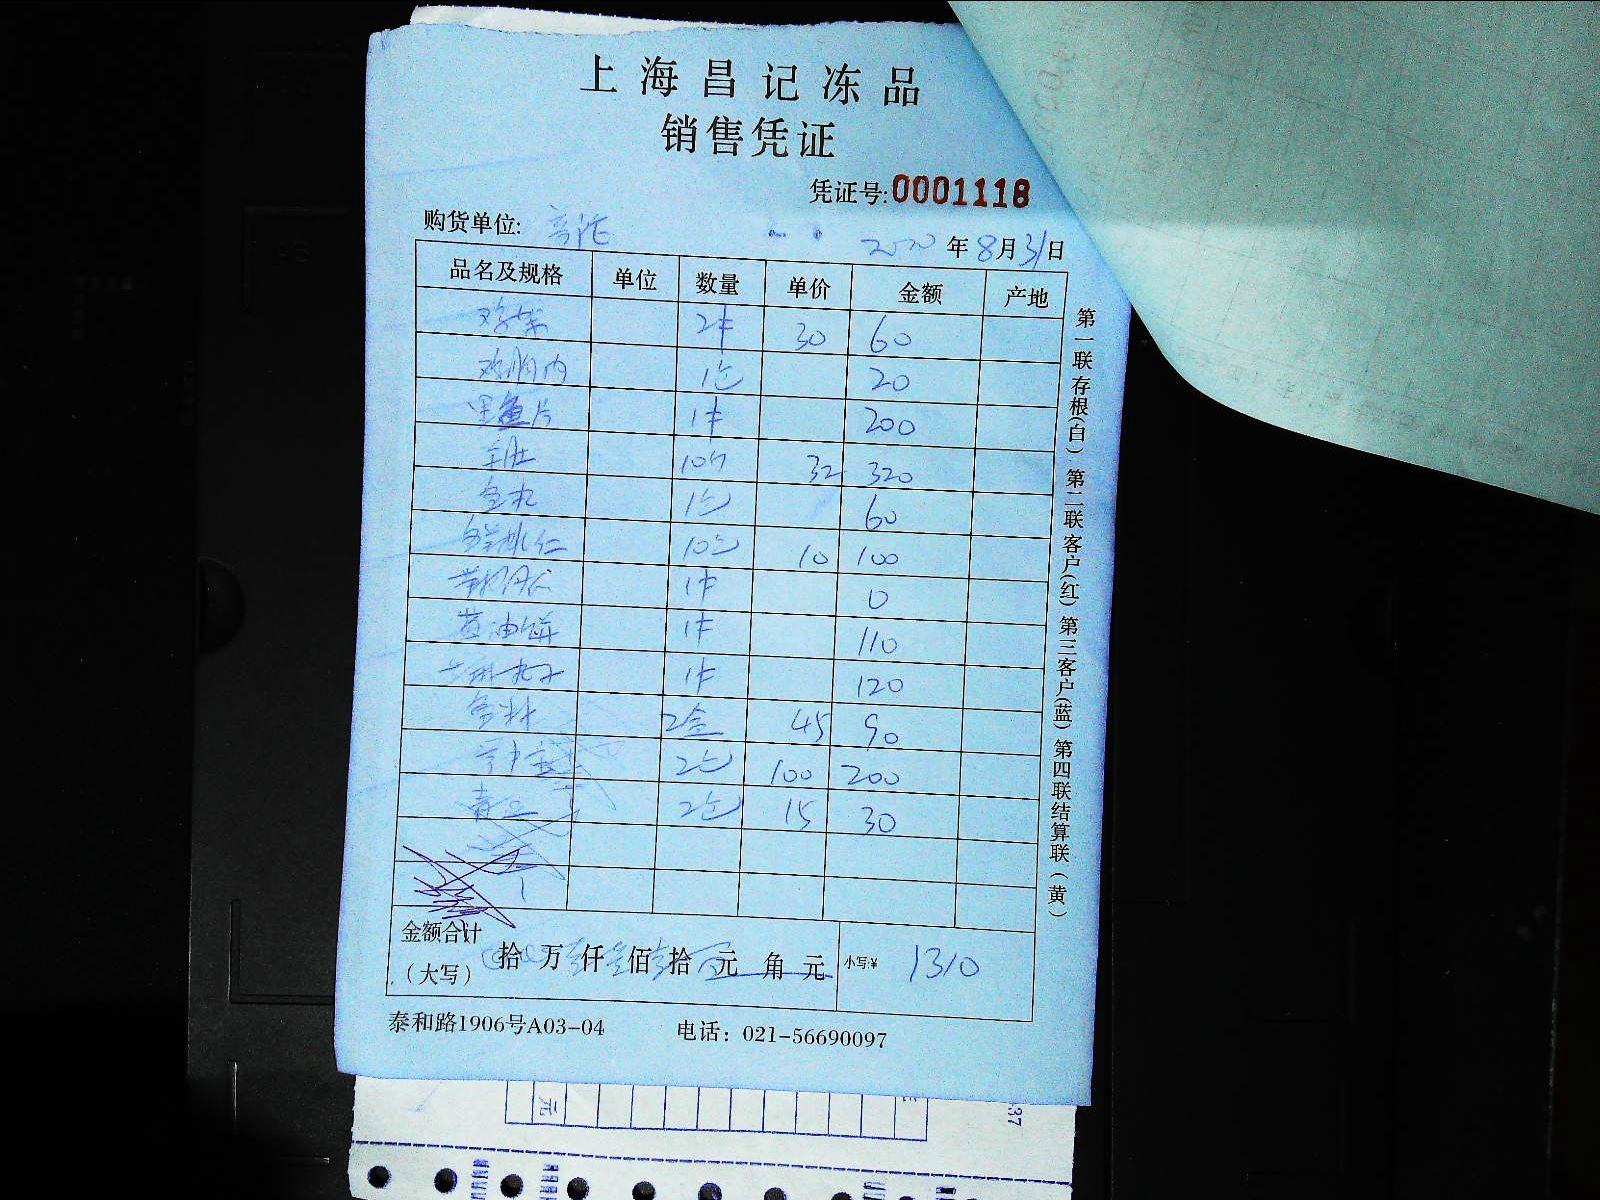 上海昌记冻品
销售凭证
凭证号:0001118
购货单位:
2020年8月31日
品名及规格 单位 数量 单价 金额 产地
2件 30 60
鸡胸肉 1包 20
黑鱼片 1件 200
羊肚 10斤 32 320
鱼丸 1包 60
鲜桃仁 10包 10 100
1件 0
黄油饼 1件 110
丸子 1件 120
2盒 45 90
2包 100 200
青豆 2包 15 30
金额合计
(大写) 拾万仟佰拾元角元 小写:¥ 1310
泰和路1906号A03-04 电话:021-56690097
第一联存根(白) 第二联客户(红) 第三客户(蓝) 第四联结算联(黄)
元
37